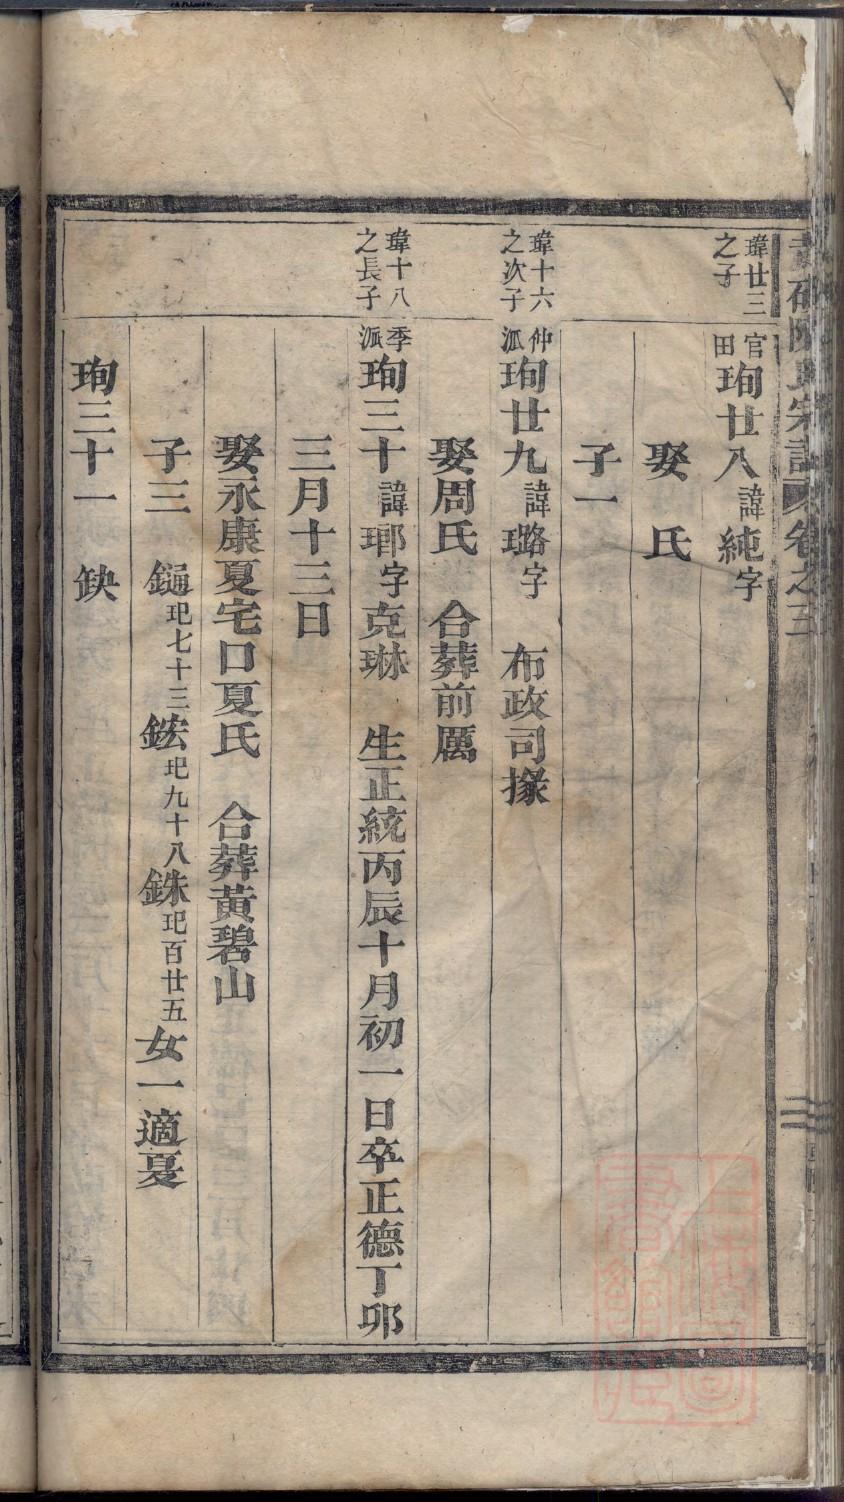 陳氏宗譜 卷之三
瑋廿三之子 官田 珣廿八 諱純字
娶 氏
子一
瑋十六之次子 仲派 珣廿九 諱璐字 布政司掾
娶周氏 合葬前厲
瑋十八之長子 季派 珣三十 諱瑘字克琳 生正統丙辰十月初一日卒正德丁卯
三月十三日
娶永康夏宅口夏氏 合葬黃碧山
子三 玘七十三 鋐玘九十八 銖玘百廿五 女一適夏
珣三十一 缺
上海圖書館藏